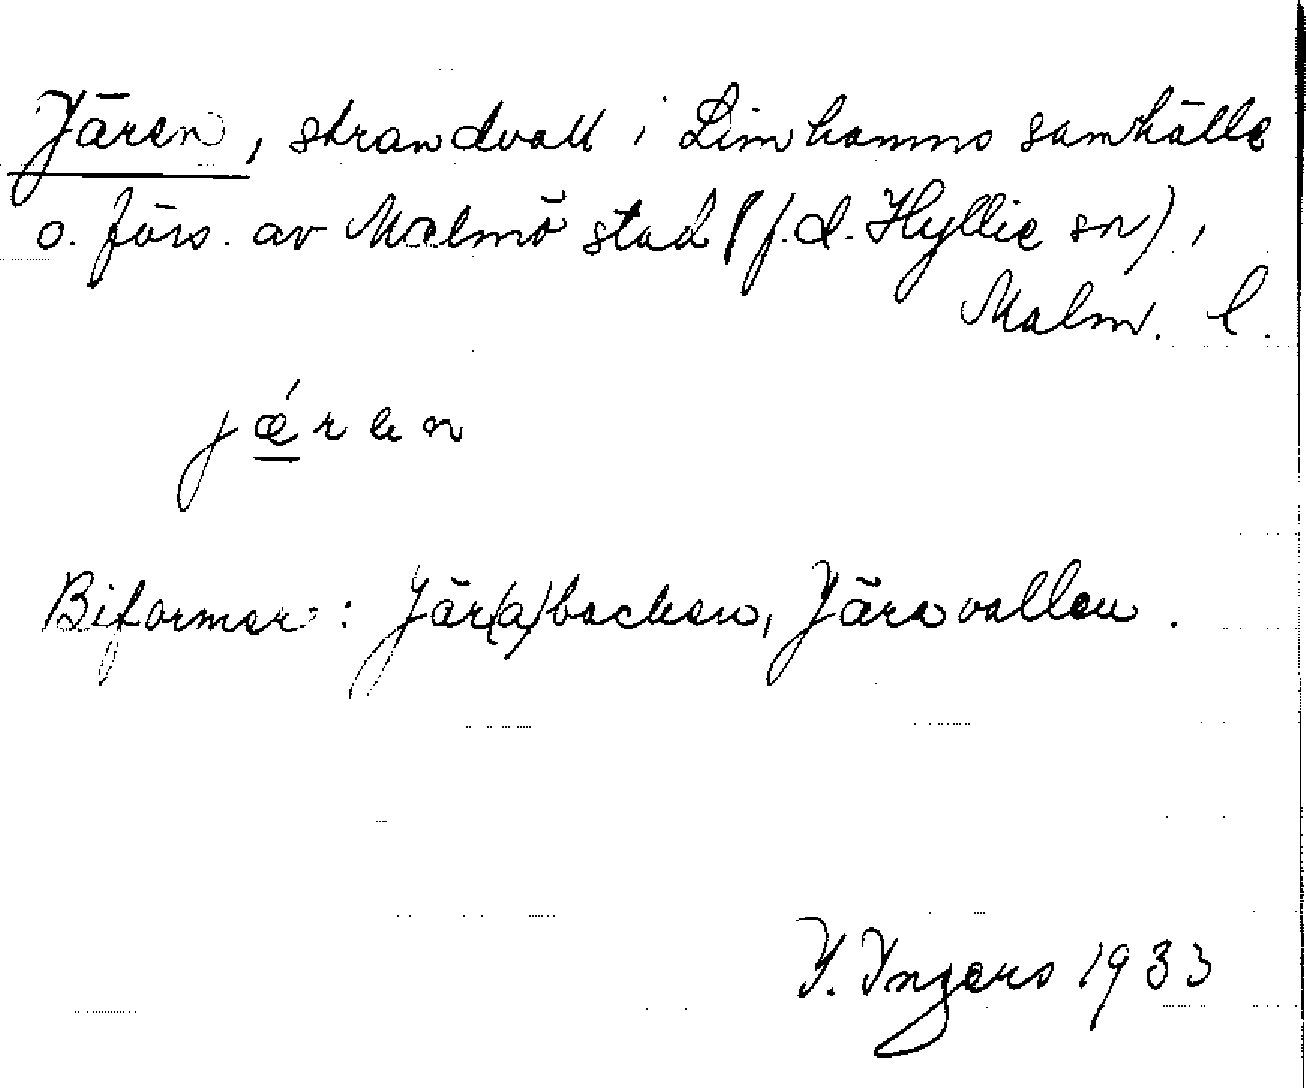 Jären, strandvall i Limhamns samhälle
o. förs. av Malmö stad (f.d. Hyllie sn),
Malm. l.
jǽren
Biformer: Jär(a)backen, Järavallen.
I. Ingers 1933